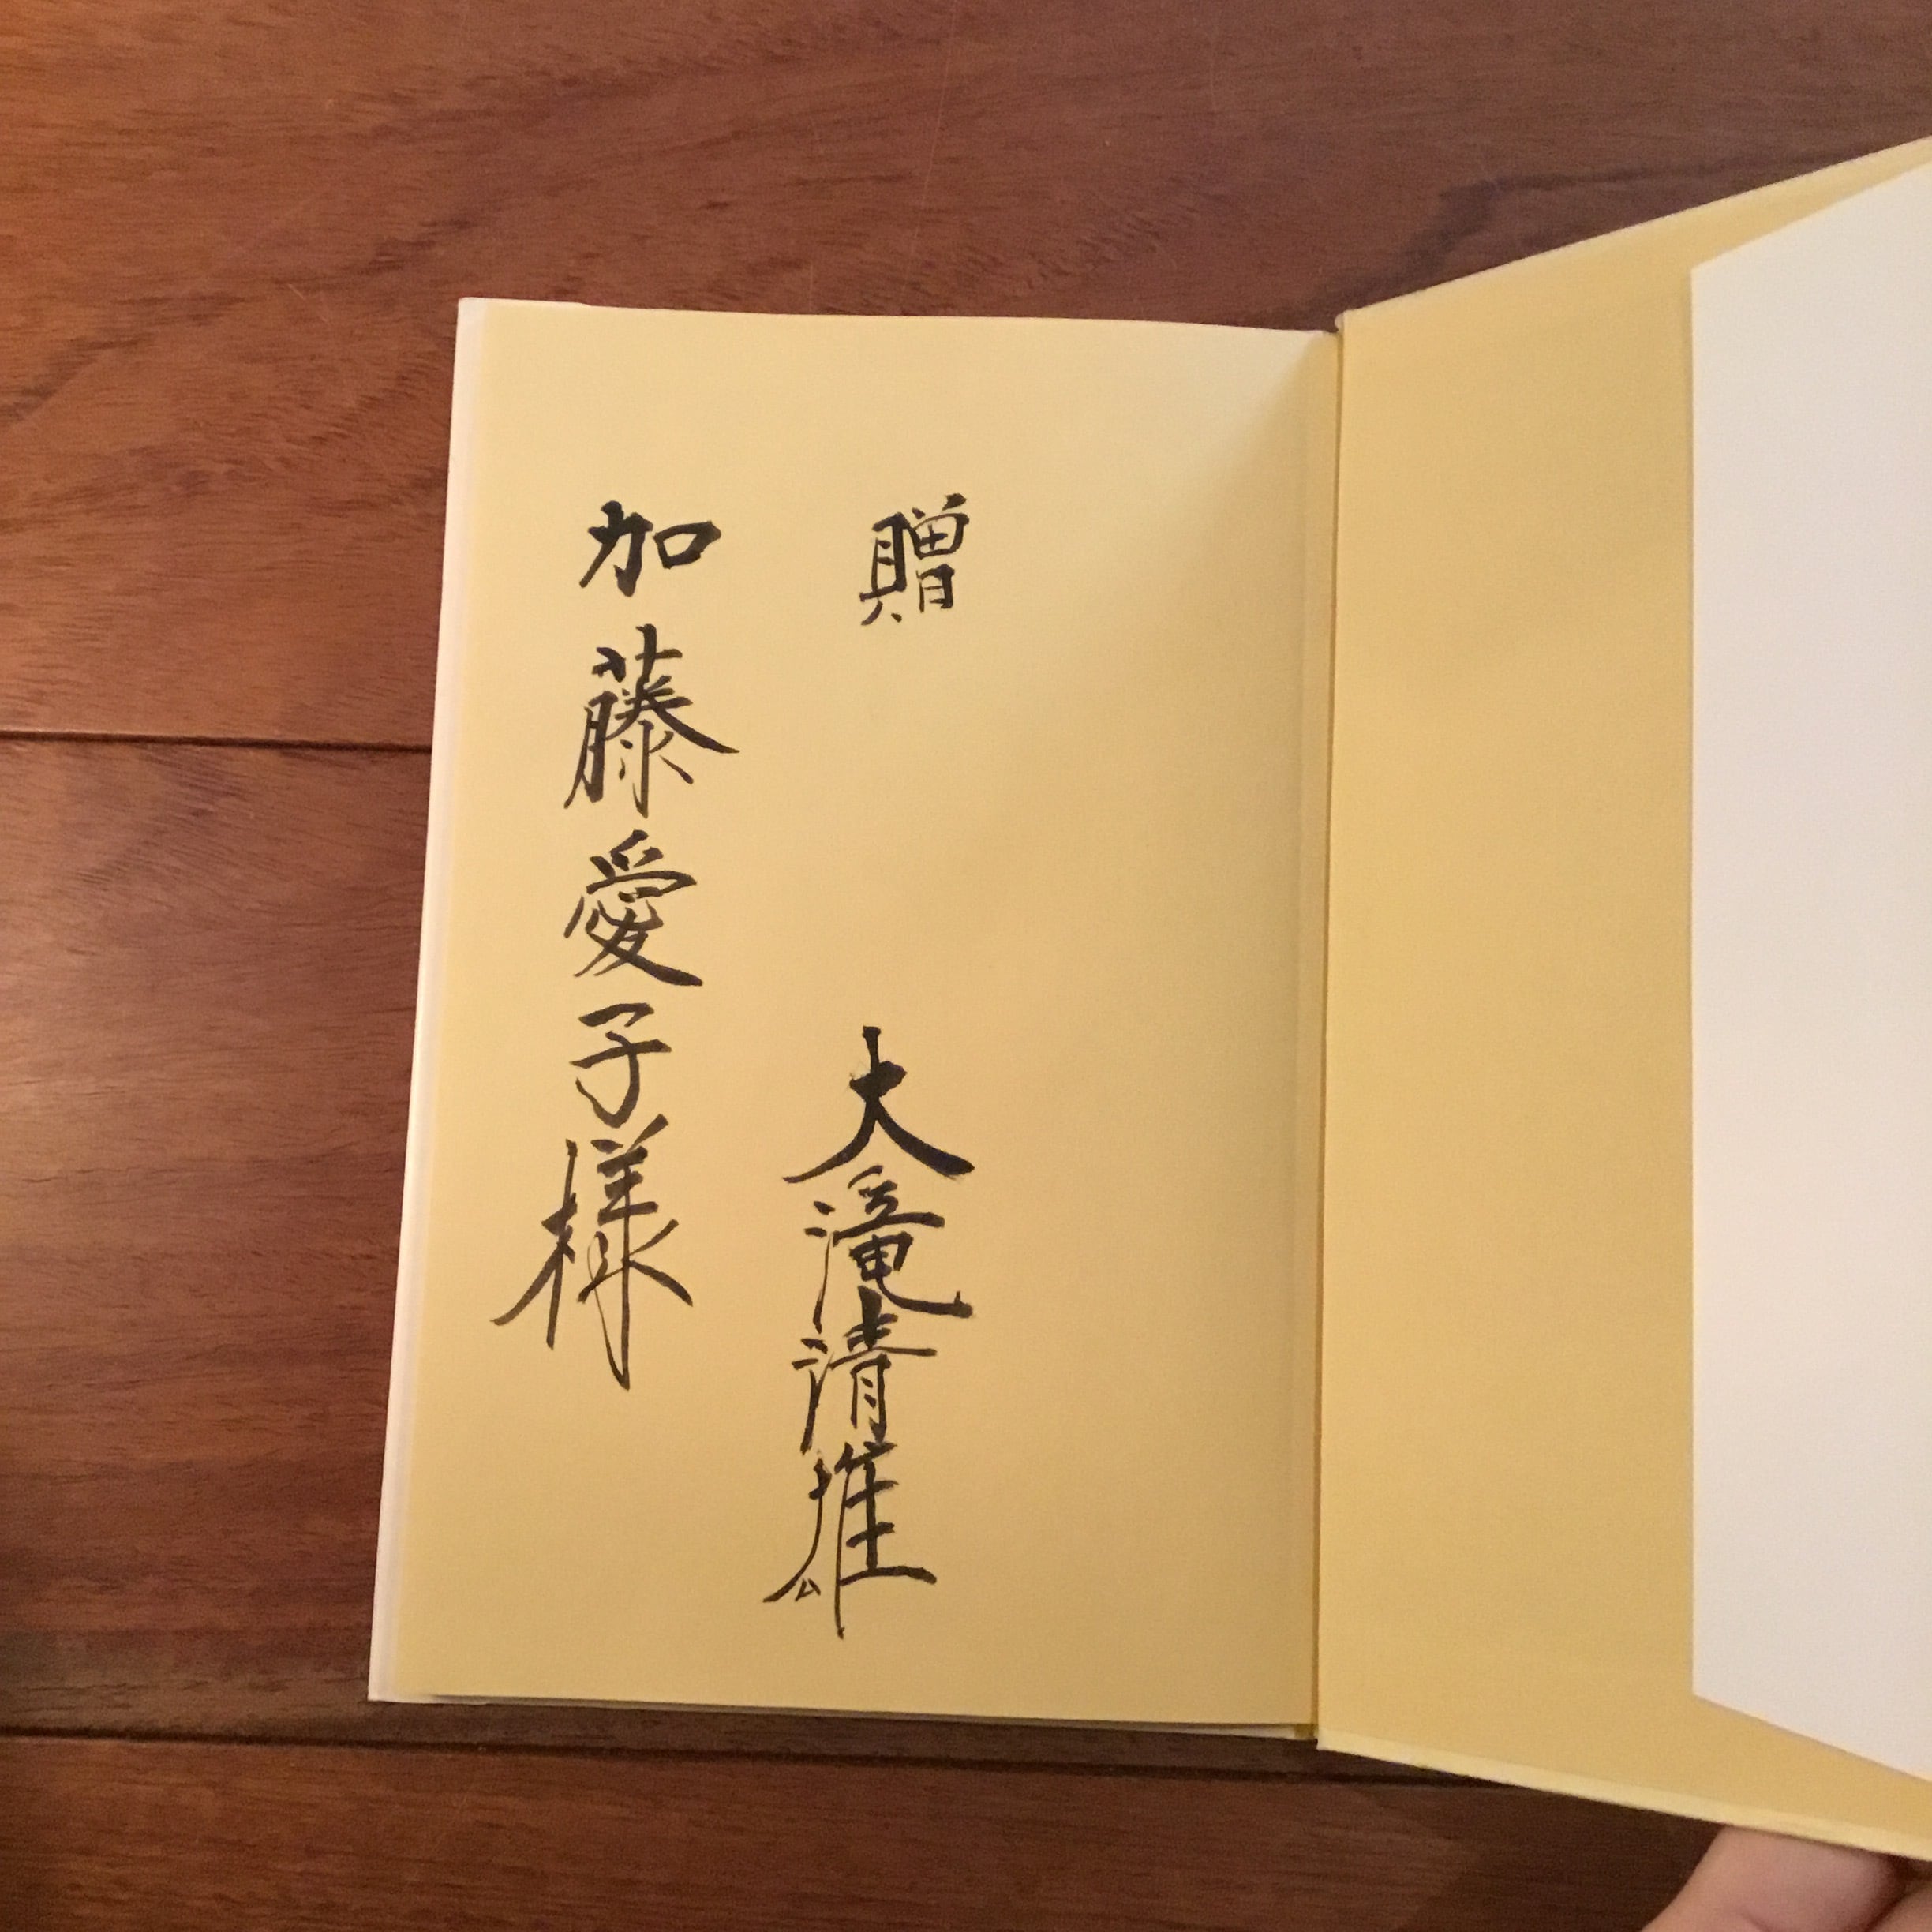 贈 大滝清雄
加藤愛子様